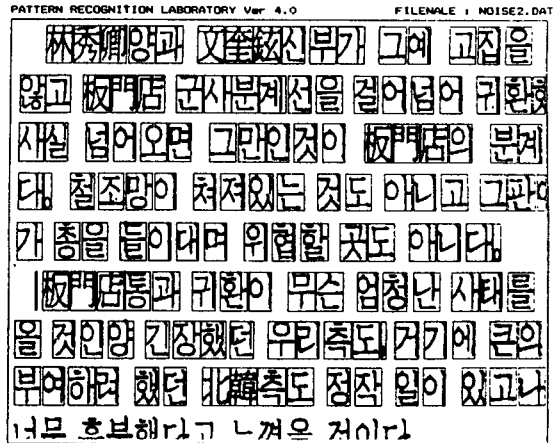 PATTERN RECOGNITION LABORATORY Ver 4.0 FILENALE : NOISE2.DAT
林秀卿양과 文奎鉉신부가 그예 고집을
않고 板門店 군사분계선을 걸어넘어 귀환했
사실 넘어오면 그만인것이 板門店의 분계
다. 철조망이 쳐져있는 것도 아니고 그판
가 총을 들이대며 위협할 곳도 아니다.
板門店통과 귀환이 무슨 엄청난 사태를
을 것인양 긴장했던 우리측도, 거기에 큰의
부여하려 했던 北韓측도 정작 일이 있고나
너무 흥분했다고 느꼈을 것이다